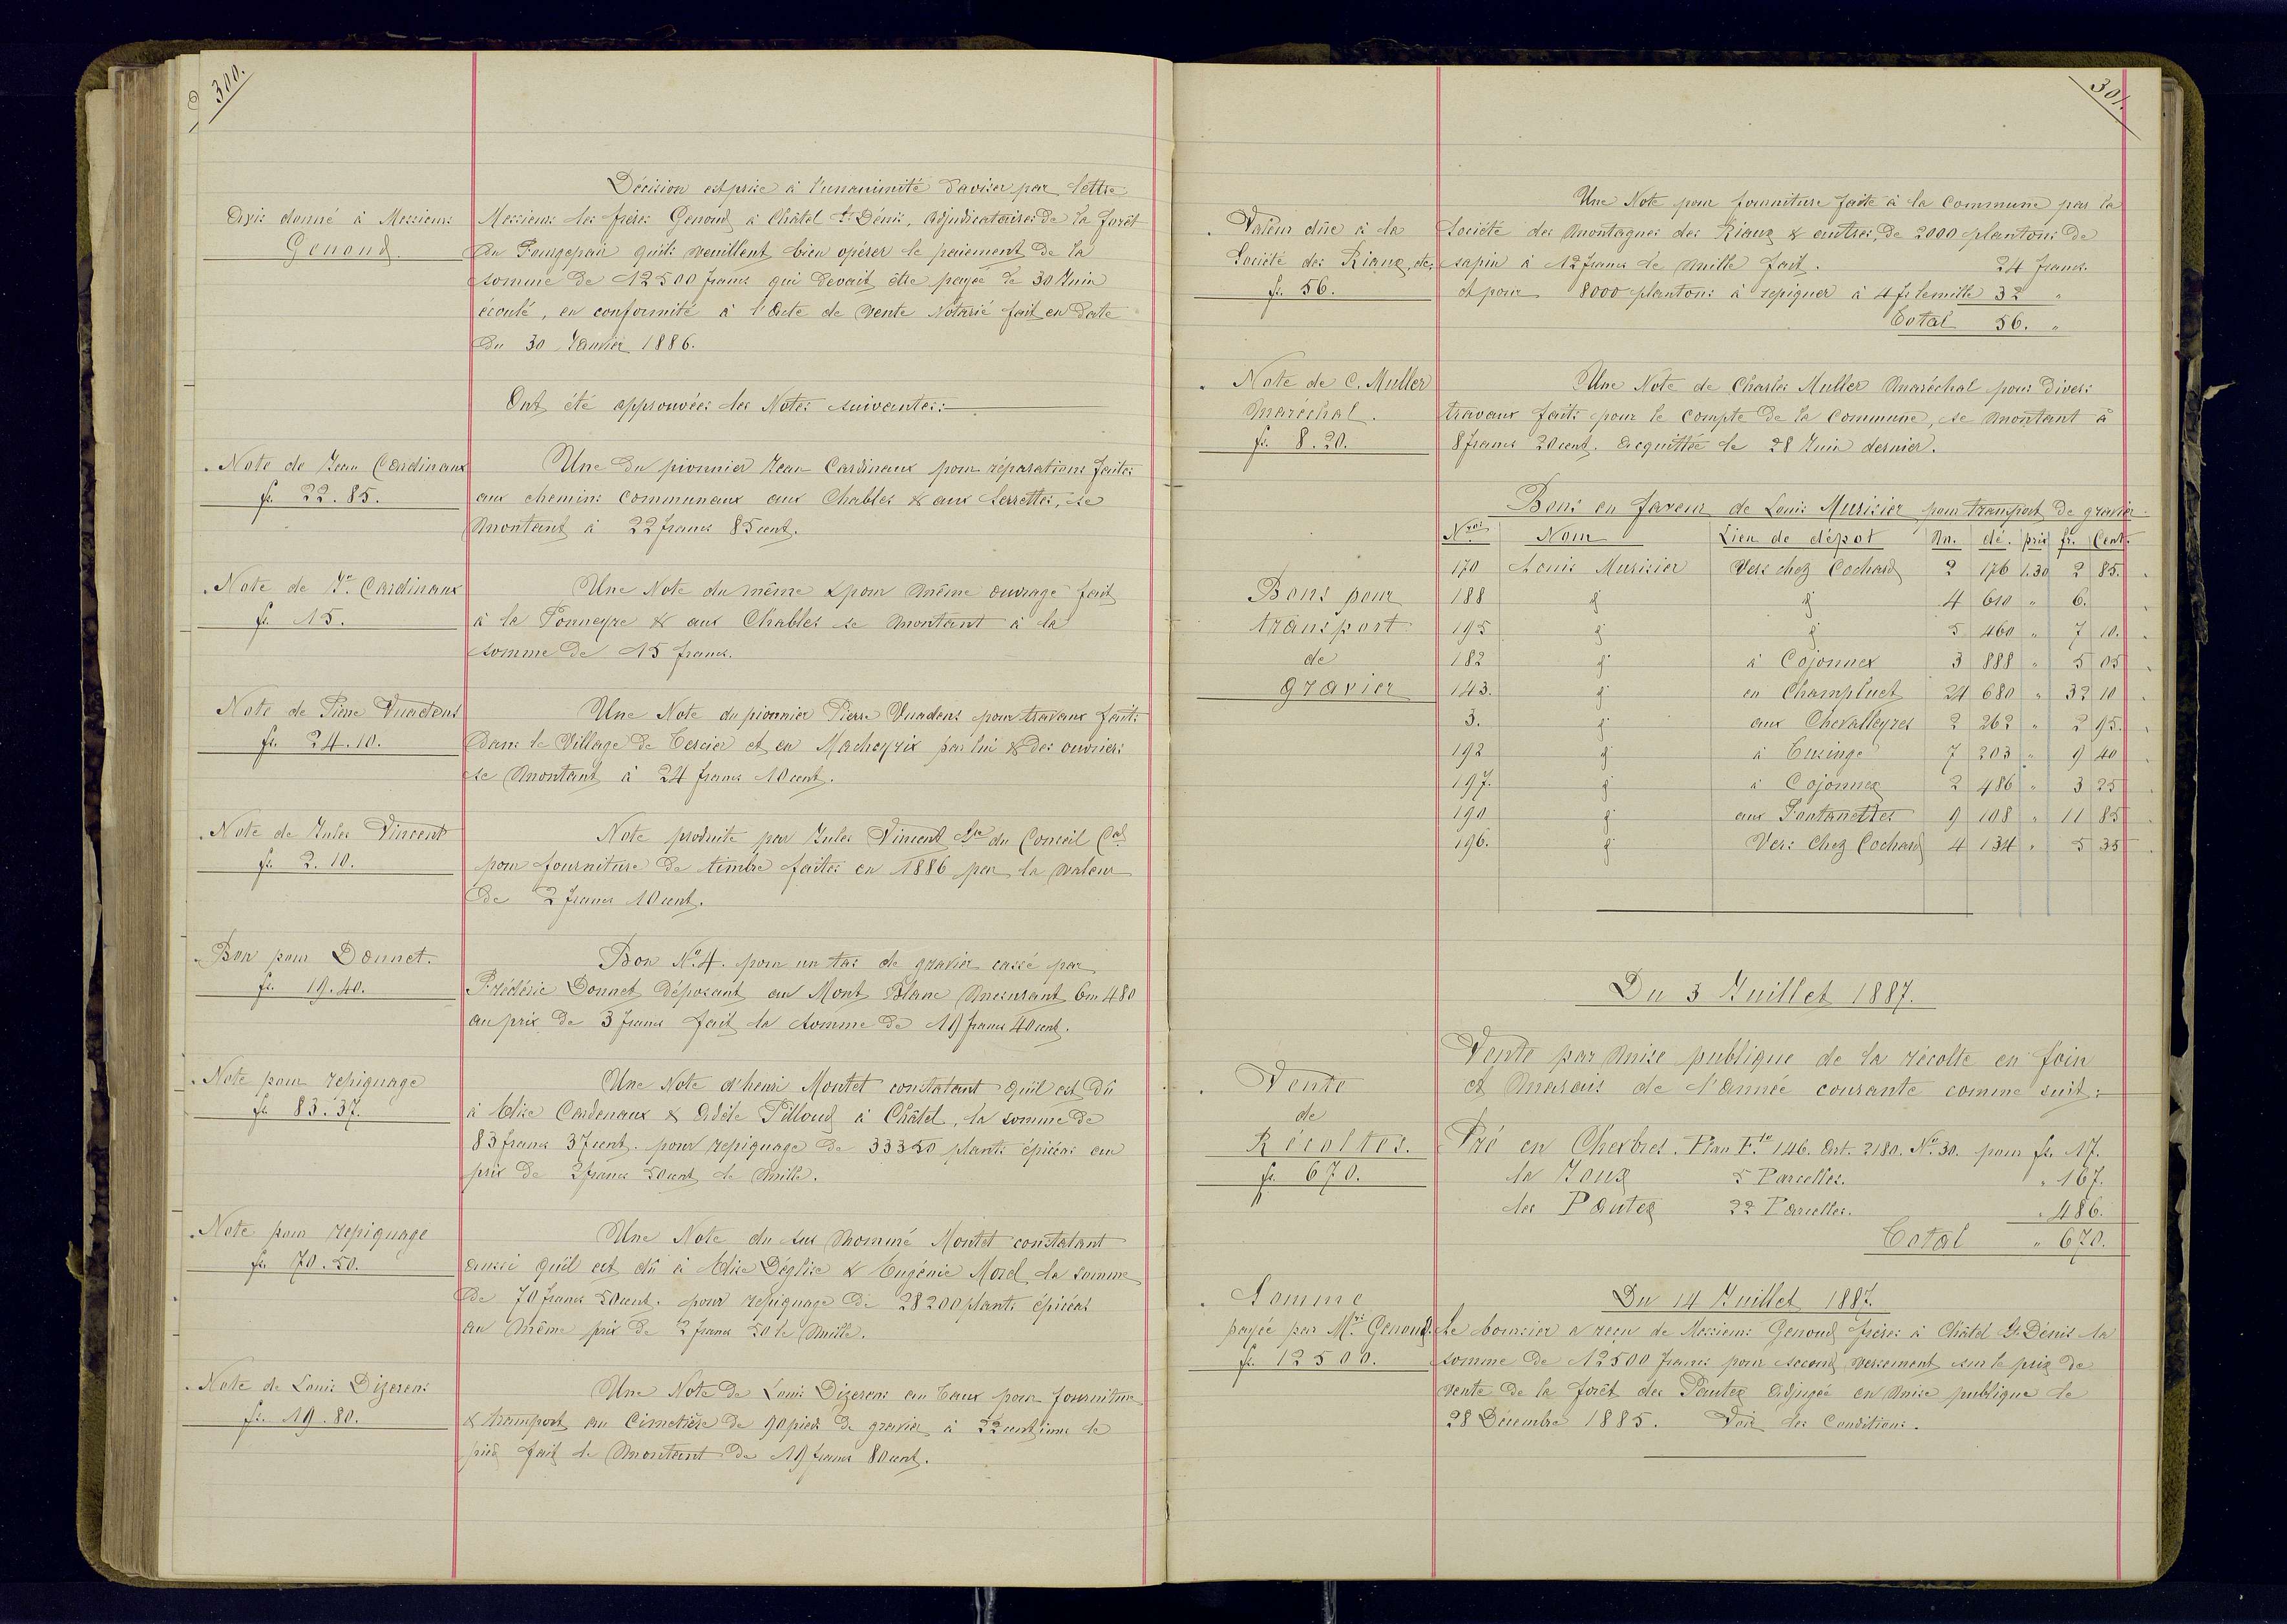 300.
Décision est prise à l'unanimité d'aviser par lettre
Avis donné à Messieurs
Genoud.
Messieurs les frères Genoud à Châtel St Dénis, adjudicataires de la forêt
du Fourgepair qu'ils veuillent bien opérer le paiement de la
somme de 12500 francs qui devait être payée le 30 Juin
écoulé, en conformité à l'Acte de vente Notarié fait en date
du 30 Janvier 1886.
Ont été approuvées les Notes suivantes:
Note de Jean Cardinaux
fr. 22.85.
Une du pionnier Jean Cardinaux pour réparations faites
aux chemins communaux aux Chables & aux Serrettes, se
montant à 22 francs 85 cent.
Note de Jn. Cardinaux
fr. 15.
Une Note du même & pour même ouvrage fait
à la Tonneyre & aux Chables se montant à la
somme de 15 francs.
Note de Pierre Vuadens
fr. 24.10.
Une Note du pionnier Pierre Vuadens pour travaux faits
dans le Village de Tercier et en Macheyrix par lui & des ouvriers
se montant à 24 francs 10 cent.
Note de Jules Vincent
fr. 2.10.
Note produite par Jules Vincent Sre du Conseil Cal
pour fourniture de timbre faites en 1886 par la valeur
de 2 francs 10 cent.
Bon pour Donnet.
fr. 19.40.
Bon No. 4. pour un tas de gravier cassé par
Frédéric Donnet déposant au Mont Blanc mesurant 6m 480
au prix de 3 francs fait la somme de 19 francs 40 cent.
Note pour repiquage
fr. 83.37.
Une Note d'henri Montet constatant qu'il est dû
à Elise Cardenaux & Adèle Pilloud à Châtel, la somme de
83 francs 37 cent. pour repiquage de 33350 plants épicéas au
prix de 2 francs 50 cent le mille.
Note pour repiquage
fr. 70.50.
Une Note du sus nommé Montet constatant
aussi qu'il est dû à Elise Déglise & Eugénie Morel la somme
de 70 francs 50 cent. pour repiquage de 28200 plants épicéas
au même prix de 2 francs 50 le mille.
Note de Louis Dizerens
fr. 19.80.
Une Note de Louis Dizerens au Caux pour fourniture
& transport au Cimetière de 90 pieds de gravier à 22 centimes le
pied fait le montant de 19 francs 80 cent.
301.
Une Note pour fourniture faite à la Commune par la
Valeur dûe à la
Société des Riaux, etc,
fr. 56.
Société des Montagnes des Riaux & autres, de 2000 plantons de
sapin à 12 francs le mille fait. 24 francs.
et pour 8000 plantons à repiquer à 4 fr le mille 32 "
Total 56. "
Note de C. Muller
maréchal.
fr. 8.20.
Une Note de Charles Muller maréchal pour divers
travaux faits pour le compte de la Commune, se montant à
8 francs 20 cent. acquittée le 28 Juin dernier.
Bons en faveur de Louis Murisier pour transport de gravier.
Nros Nom Lieu de dépot m. dé. prix fr. Cent.
Bons pour
transport
de
gravier
170 Louis Murisier Vers chez Cochard 2 176 1.30 2 85.
188 " " 4 610 " 6.
195 " " 5 460 " 7 10.
182 " à Cojonnex 3 888 " 5 05
143. " en Champluet 24 680 " 32 10
3. " aux Chevalleyres 2 262 " 2 95.
192 " à Tusinge 7 203 " 9 40
197. " à Cojonnex 2 486 " 3 25
190 " aux Fontanettes 9 108 " 11 85
196. " Vers Chez Cochard 4 134 " 5 35
Du 3 Juillet 1887.
Vente
de
Récoltes.
fr. 670.
Vente par mise publique de la récolte en foin
et marais de l'année courante comme suit:
Pré en Chexbres. Plan Fo 146. Art. 2180. No. 30. pour fr. 17.
la Joux 5 Parcelles. " 167.
les Pautex 22 Parcelles. " 486.
Total " 670.
Du 14 Juillet 1887.
Somme
payée par Mrs. Genoud.
fr. 12500.
Le boursier a reçu de Messieurs Genoud frères à Châtel St. Dénis la
somme de 12500 francs pour second versement sur le prix de
vente de la forêt des Pautex adjugée en mise publique le
28 Décembre 1885. Voir les Conditions.